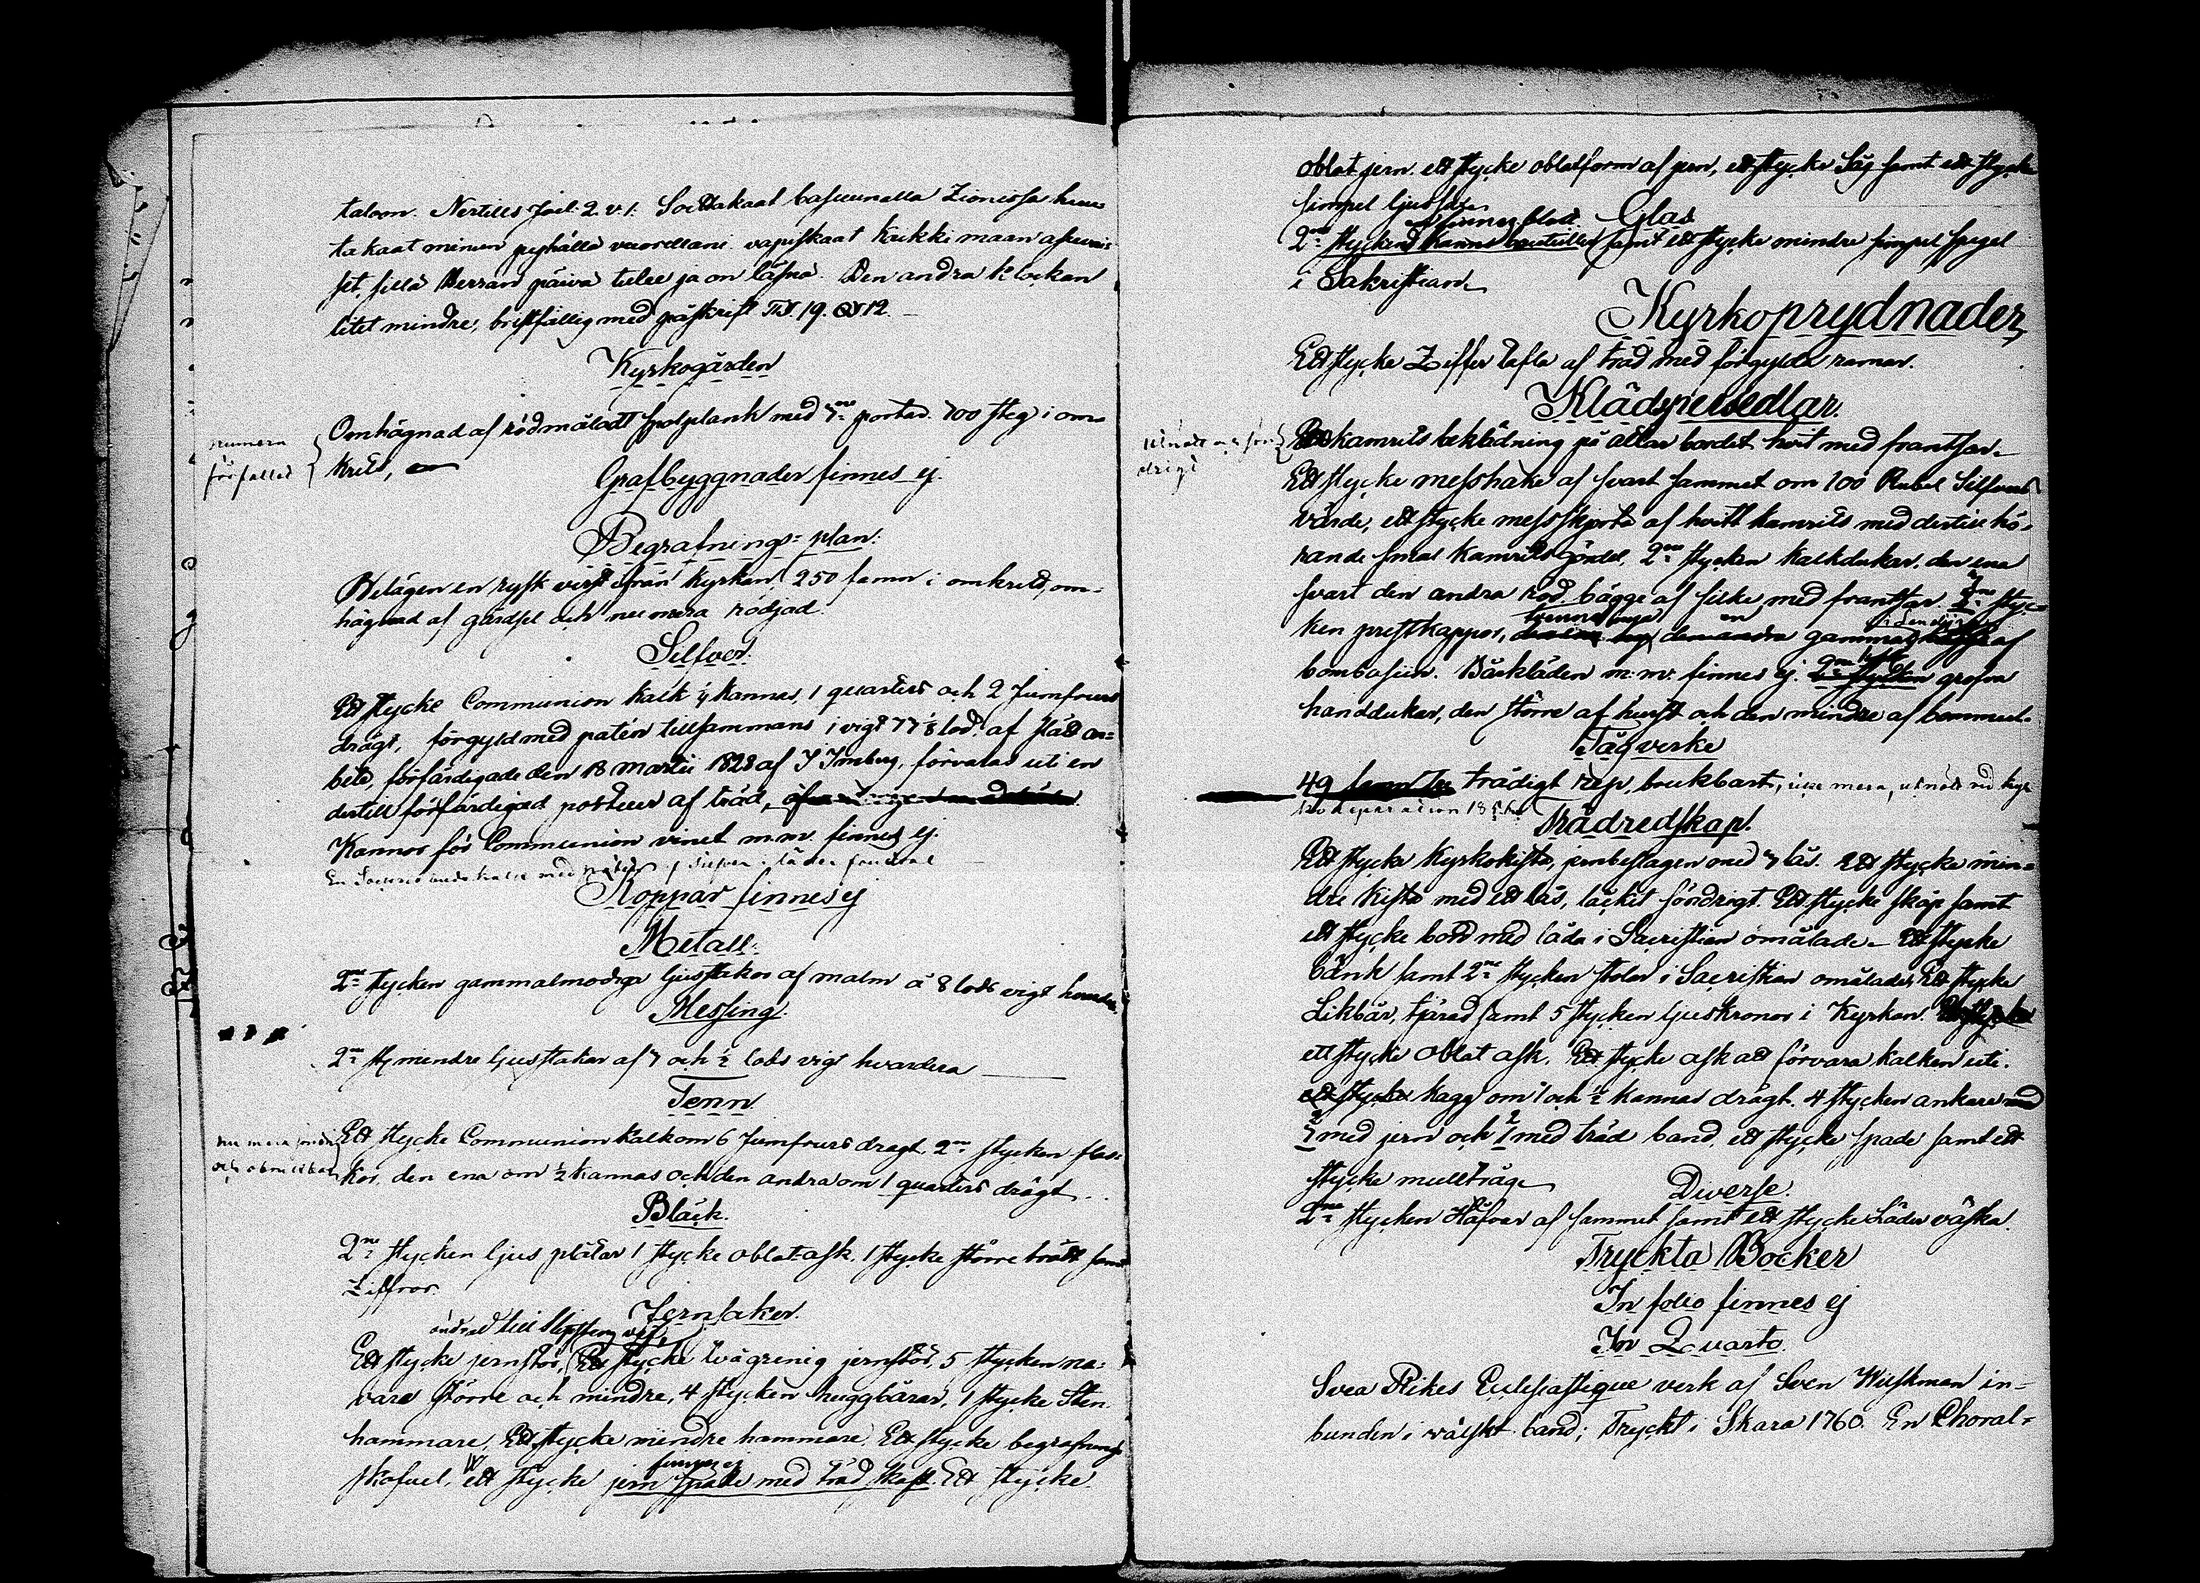 taloon. Nertills Joel. 2. v. 1. Soittakaat basunalla Zionissa huu-
takaat minun pyhällä vuorellani. vapiskaat Kaikki maan asuvai-
set, sillä Herran päivä tulee ja on läsnä. Den andra klockan
litet mindre, bristfällig med påskrift 19. 12.
Kyrkogården
Omhägnad af rödmåladt spolplank med portar. 700 steg i om-
krets,
numera
förfallet
Grafbyggnader finnes ej.
Begrafnings-plan.
Belägen en rysk verst ifrån Kyrkan, 250 famn i omkrets, om-
hägnad af gärdsel och nu mera rödjad.
Silfver.
Ett stycke Communion kalk ¼ kannas, 1 quarters och 2 Jumfrurs
drägt, förgyld med patén tillsammans i vigt 77 ⅛ lod. af slätt ar-
bete, förfärdigade den 18 Martii 1828 af, förvaras uti en
dertill förfärdigad af träd,
Kannor för Communion vinet m.m. finnes ej.
En med af i läder foudral
Koppar finnes ej
Metall.
2ne stycken gammalmodiga ljusstakar af malm à 8 lods vigt hvardera.
Messing.
2ne st mindre ljusstakar af 7 och ½ lods vigt hvardera
Tenn.
Ett stycke Communion kalk om 6 Jumfrurs drägt. 2ne stycken flas-
kor, den ena om ½ kannas och den andra om 1 quarters drägt.
nu mera
och obrukbar
Bläck.
2ne stycken ljus plåtar 1 stycke oblat ask. 1 stycke större samt
Ziffror.
Jernsaker.
ändrad till
Ett stycke jernstör, Ett stycke tvågrenig jernstör, 5 stycken na-
vare större och mindre, 4 stycken huggbårar, 1 stycke Sten
hammare, Ett stycke mindre hammare, Ett stycke begrafnings
finnes ej
skofvel, ett stycke jern spade med träd skaft. Ett stycke
oblat jern. ett stycke oblatform af jern, ett stycke Såg samt ett stycke
simpel ljussax
Glas
2ne stycken Kanns bouteiller samt ett stycke mindre simpel spegel
i Sakristian
Kyrkoprydnader,
Ett stycke Ziffer tafla af träd med förgylda ramar.
Klädespersedlar.
kamrits beklädning på altar bordet hvit med frantsar.
Ett stycke messhake af svart sammet om 100 Rubel Silfvers
värde, ett stycke messskjorta af hvitt kamrits med dertill hö-
rande smal kamrits gördel, 2ne stycken kalkdukar, den ena
svart den andra röd, bägge af silke med frantsar. stych-
trenne
ken prestkappor, den andra gammal af
bombasin. Bårkläden m.m. finnes ej. 2ne stycken grofva
handdukar, den större af hvit och den mindre af bommul.
Tågverke
49 famn trådigt rep, brukbart, icke mera, utnött vid kyr-
ko Reparation 1856
Trädredskap.
Ett stycke Kyrkokista, jernbeslagen med 7 lås. Ett stycke min-
dre kista med ett lås, läcket söndrigt. Ett stycke skåp samt
ett stycke bord med låda i Sacristian omålade. Ett stycke
bänk samt 2ne stycken stolar i Sacristian omålade, Ett stycke
Likbår, tjärad samt 5 stycken ljuskronor i Kyrkan.
ett stycke oblat ask. Ett stycke ask att förvara kalken uti.
ett stycke kagg om 1 och ½ kannas drägt. 4 stycken ankare
med jern och med träd band, ett stycke spade samt ett
stycke mulltråg
Diverse.
2ne stycken Håfvar af sammet samt ett stycke Läder väska.
Tryckta Böcker
In folio finnes ej
In Quarto.
Svea Rikes Ecclesiastique verk af Sven Wilskman in-
bunden i välskt band; Tryckt i Skara 1760. En Choral-